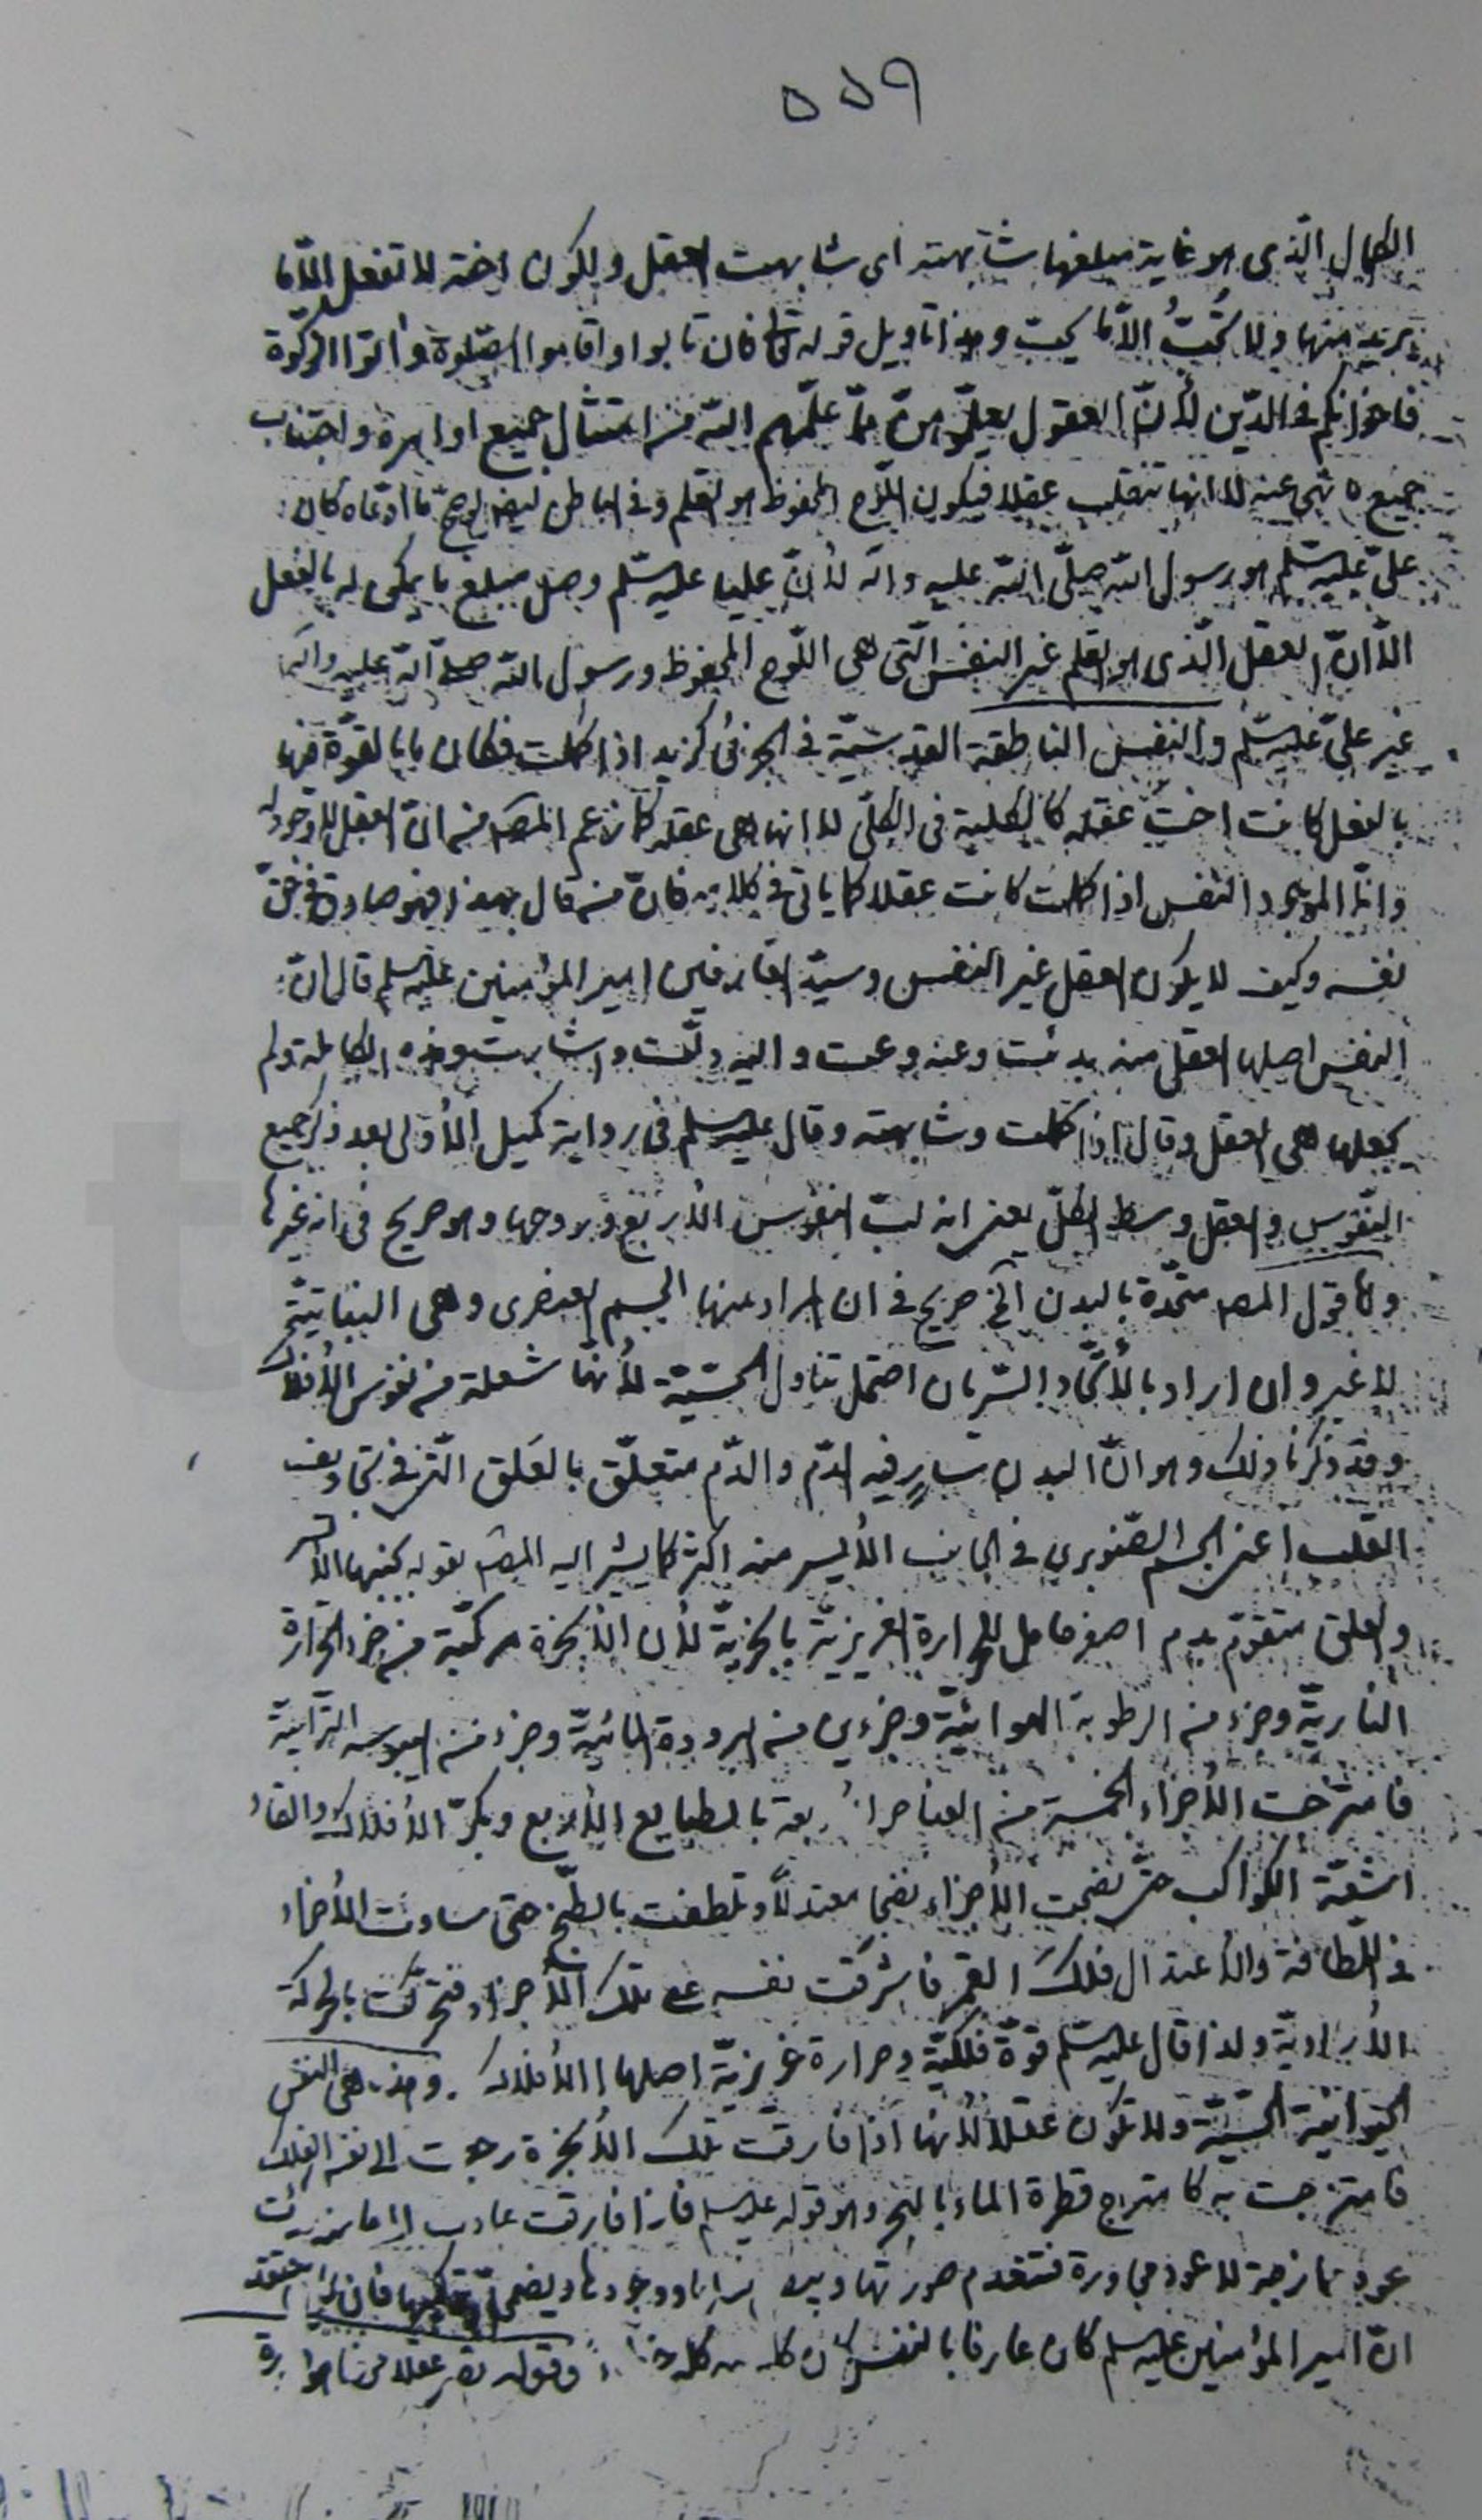 ٥٥٩
الكمال الذى هو غاية مبلغها شابهته اى شابهت العقل ولكون اخته لا تفعل الّا ما
يريد منها ولا تُحبُّ الّا ما يحبّ وهذا تأويل قوله تعالى فان تابوا واقاموا الصّلوة وآتوا الزكوة
فاخوانكم فى الدّين لأنّ العقول يعلّمونهنّ ممّا علّمهم اللّه من امتثال جميع اوامره واجتناب
جميع ما نهى عنه لا انها تنقلب عقلا فيكون اللّوح المحفوظ هو القلم وفى الباطن لو صحّ ما ادّعاه كان
علىّ عليه السّلم هو رسول اللّه صلّى اللّه عليه وآله لأنّ عليا عليه السّلم وصل مبلغ ما يمكن له بالفعل
الّا انّ العقل الّذى هو القلم غير النفس الّتى هى اللّوح المحفوظ ورسول اللّه صلى اللّه عليه وآله
غير علىّ عليه السّلم والنفس الناطقة القدسيّة فى الجزئى كزيد اذا كملت فكان ما بالقوّة فيها
بالفعل كانت اختَ عقله كالكلية فى الكلّى لا انها هى عقله كما زعم المصـ من انّ العقل لا وجود له
وانّما الموجود النفس اذا كملت كانت عقلا كما يأتى فى كلامه فانّ من قال بهذا فهو صادق فى حقّ
نفسه وكيف لا يكون العقل غير النفس وسيّد العارفين امير المؤمنين عليه السلم قال انّ
النفس اصلها العقل منه بدئت وعنه وعت واليه دلّت واشارت وهذه الكاملة ولم
يجعلها هى العقل وقال اذا كملت وشابهته وقال عليه السلم فى رواية كميل الأولى بعد ذكر جميع
النّفوس والعقل وسط الكلّ يعنى انه لبّ النفوس الأربع وروحها وهو صريح فى انه غيرها
وامّا قول المصـ متّحدة بالبدن الخ صريح فى ان المراد منها الجسم العنصرى وهى النباتيّة
لا غير وان اراد بالأتّحاد السّريان احتمل تناول الحسّيّة لأنهّا شعلة من نفوس الأفلاك
وقد ذكرنا ذلك وهو انّ البدن سارٍ فيه الدّم والدّم متعلّق بالعَلق الّتى فى تجاويف
القلب اعنى الجسم الصّنوبرى فى الجانب الأيسر منه اكثر كما يشير اليه المصـ بقوله
والعلق متقوّم بدم اصفر حامل للحرارة الغريزيّة بالبخريّة لأن الأبخرة مركّبة من جزء الحرارة
الناريّة وجزء من الرطوبة الهوائيّة وجزءين من البرودة المائيّة وجزء من اليبوسة الترابيّة
فامتزجت الأجزاء الخمسة من العناصر الأربعة بالطبايع الأربع وبكرّ الأفلاك والقاء
اشعّة الكواكب حتّى نضجت الأجزاء نضجا معتدلا وتلطفت بالطبخ حتى ساوت الأجزاء
فى اللّطافة والأعتدال فلكَ القمر فاشرقت نفسه على تلك الأجزاء فتحرّكت بالحركة
الأراديّة ولذا قال عليه السّلم قوّة فلكيّة وحرارة غريزيّة اصلها الأفلاك. وهذه هى النفس
الحيوانيّة الحسّيّة ولا تكون عقلا لأنها اذا فارقت تلك الأبخرة رجعت الى نفس الفلك
فامتزجت به كامتزاج قطرة الماء بالبحر وهو قوله عليه السلم فاذا فارقت عادت الى ما منه بدئت
عود ممازجة لا عود مجاورة فتنعدم صورتها ويبطل فعلها ووجودها ويضمحلّ تركيبها فان
انّ امير المؤمنين عليه السلم كان عارفا بالنفس كان وقوله